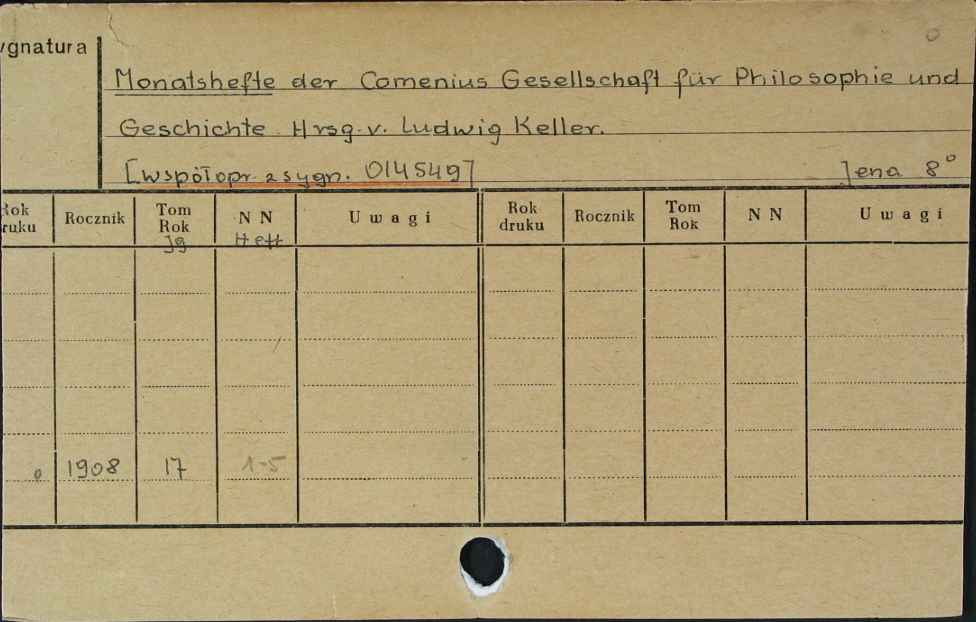 ygnatura
Monatshefte der Comenius Gesellschaft für Philosophie und
Geschichte. Hrsg. v. Ludwig Keller.
[współopr. z sygn. 014549] Jena 8°
Rok druku Rocznik Tom Rok Jg N N Heft U w a g i Rok druku Rocznik Tom Rok N N U w a g i
1908 17 1-5